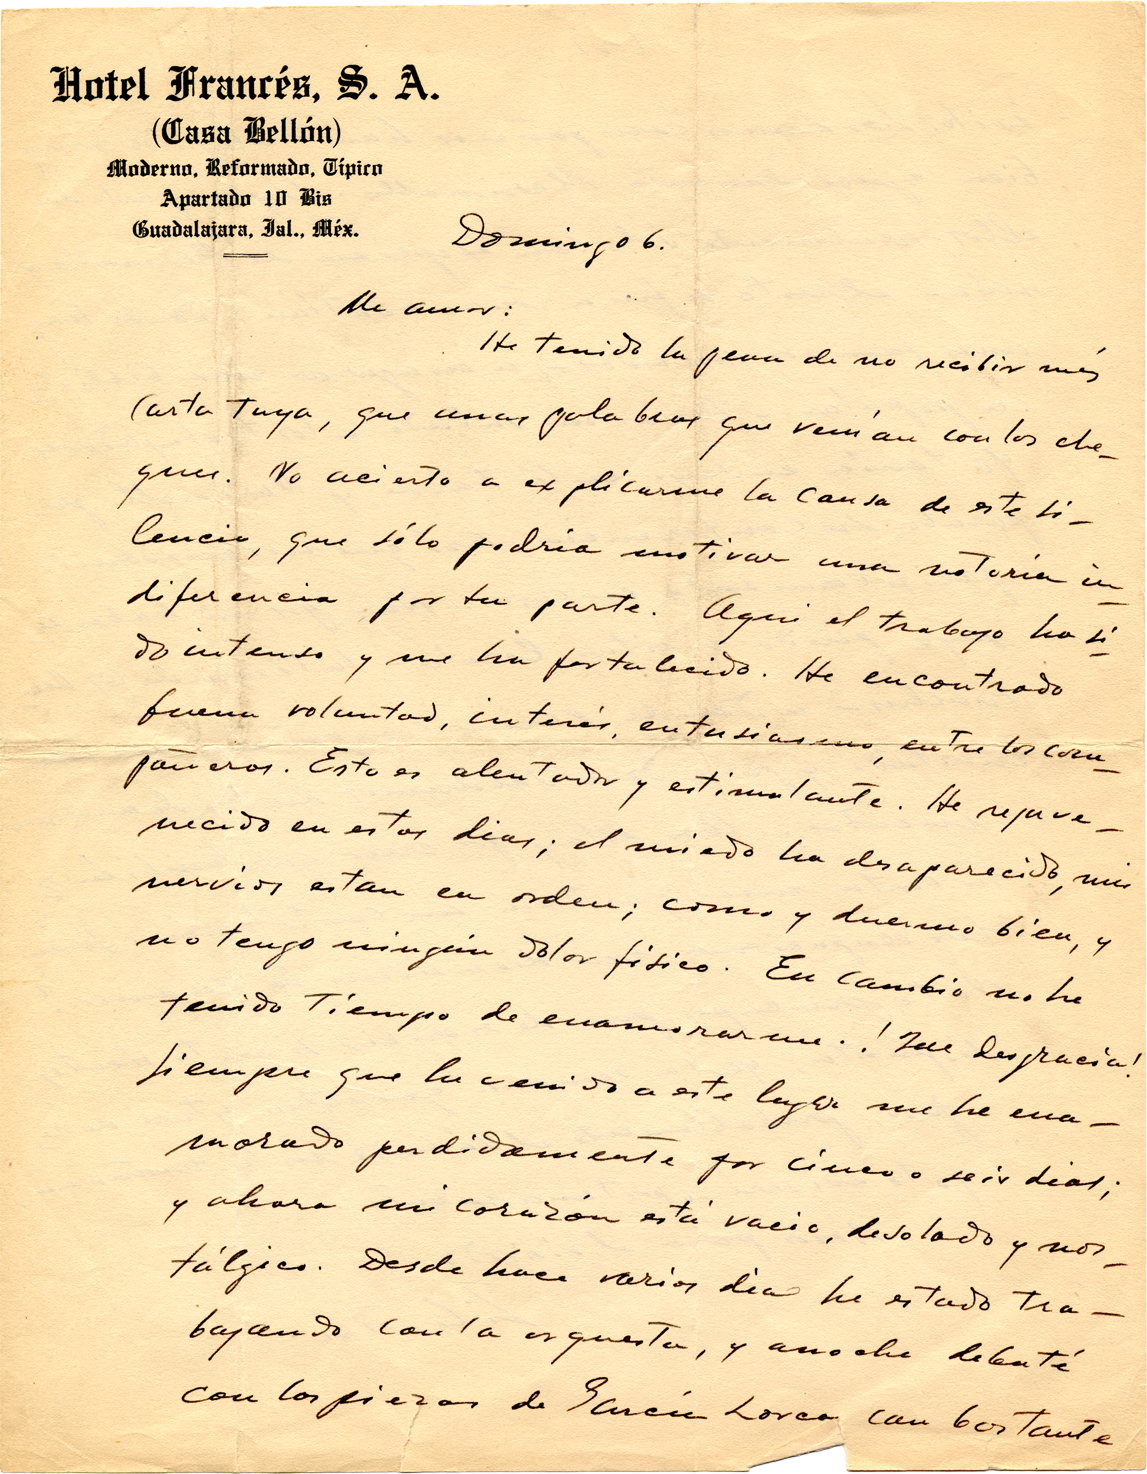 Hotel Francés, S. A.
(Casa Bellón)
Moderno, Reformado, Típico
Apartado 10 Bis
Guadalajara, Jal., Méx.
Domingo 6.
Mi amor:
He tenido la pena de no recibir más
carta tuya, que unas palabras que venían con los che-
ques. No acierto a explicarme la causa de este si-
lencio, que sólo podría motivar una notoria in-
diferencia por tu parte. Aquí el trabajo ha si-
do intenso y me ha fortalecido. He encontrado
buena voluntad, interés, entusiasmo, entre los com-
pañeros. Esto es alentador y estimulante. He rejuve-
necido en estos dias; el miedo ha desaparecido, mis
nervios estan en orden; como y duermo bien, y
no tengo ningún dolor físico. En cambio no he
tenido tiempo de enamorarme. ! Que desgracia!
Siempre que he venido a este lugar me he ena-
morado perdidamente por cinco o seis dias;
y ahora mi corazón está vacio, desolado y nos-
tálgico. Desde hace varios dias he estado tra-
bajando con la orquesta, y anoche debuté
con las piezas de García Lorca con bastante